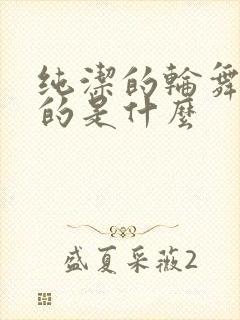 纯潔的輪舞
的是什麼
盛夏采薇2